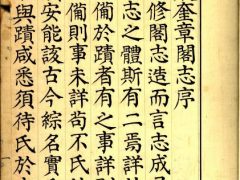 奎章閣志序
修閣志造而言志成
志之體斯有二焉詳
備於蹟者有之事詳
備則事未詳苟不氏
安能該古今綜名實
與蹟咸悉須待氏於